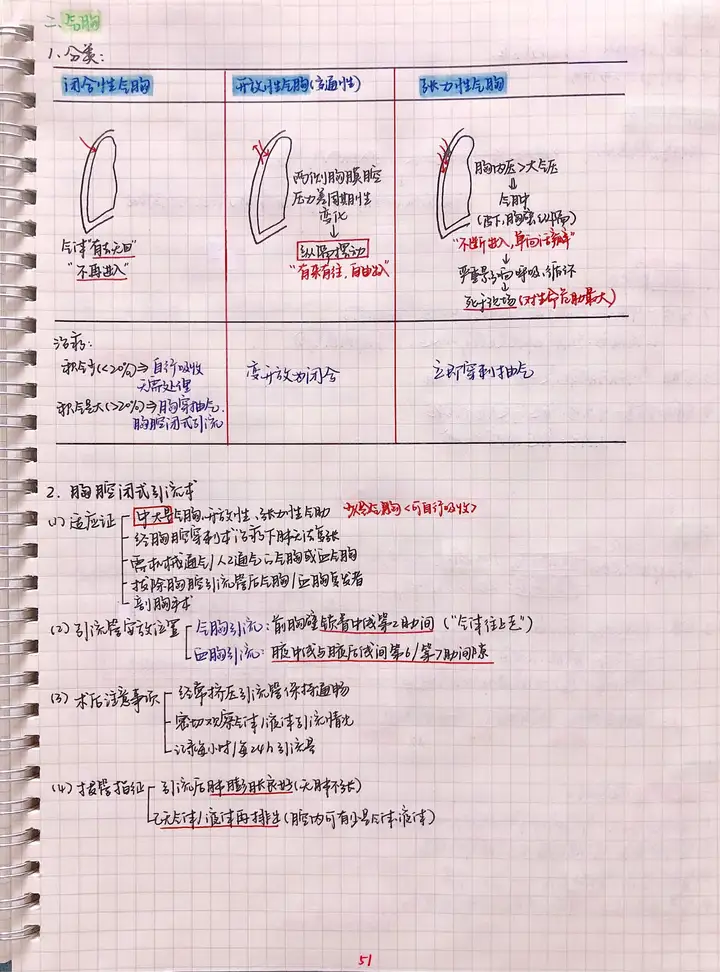 二、气胸
1.分类:
闭合性气胸 开放性气胸(交通性) 张力性气胸
气体"有去无回"
"不再进入"
两侧胸膜腔
压力差周期性
变化
↓
纵隔摆动
"有来有往,自由出入"
胸内压>大气压
↓
气肿
(皮下,胸壁,纵隔)
"不断进入,单向活瓣"
↓
严重影响呼吸、循环
↓
死于现场(对生命危胁最大)
治疗:
积气少(<20%)⇒自行吸收
无需处理
积气量大(>20%)⇒胸穿抽气.
胸腔闭式引流
变开放为闭合
立即穿刺抽气
2.胸腔闭式引流术
(1)适应证
中大量气胸、开放性、张力性气胸 少量气胸<可自行吸收>
经胸腔穿刺术治疗下肺无法复张
需机械通气/人工通气の气胸或血气胸
拔除胸腔引流管后气胸/血胸复发者
剖胸手术
(2)引流管安放位置
气胸引流:前胸壁锁骨中线第2肋间("气体往上走")
血胸引流:腋中线与腋后线间第6/第7肋间隙
(3)术后注意事项
经常挤压引流管保持通畅
密切观察气体/液体引流情况
记录每小时/每24h引流量
(4)拔管指征
引流后肺膨胀良好(无肺不张)
无气体/液体再排出(腔内可有少量气体、液体)
51